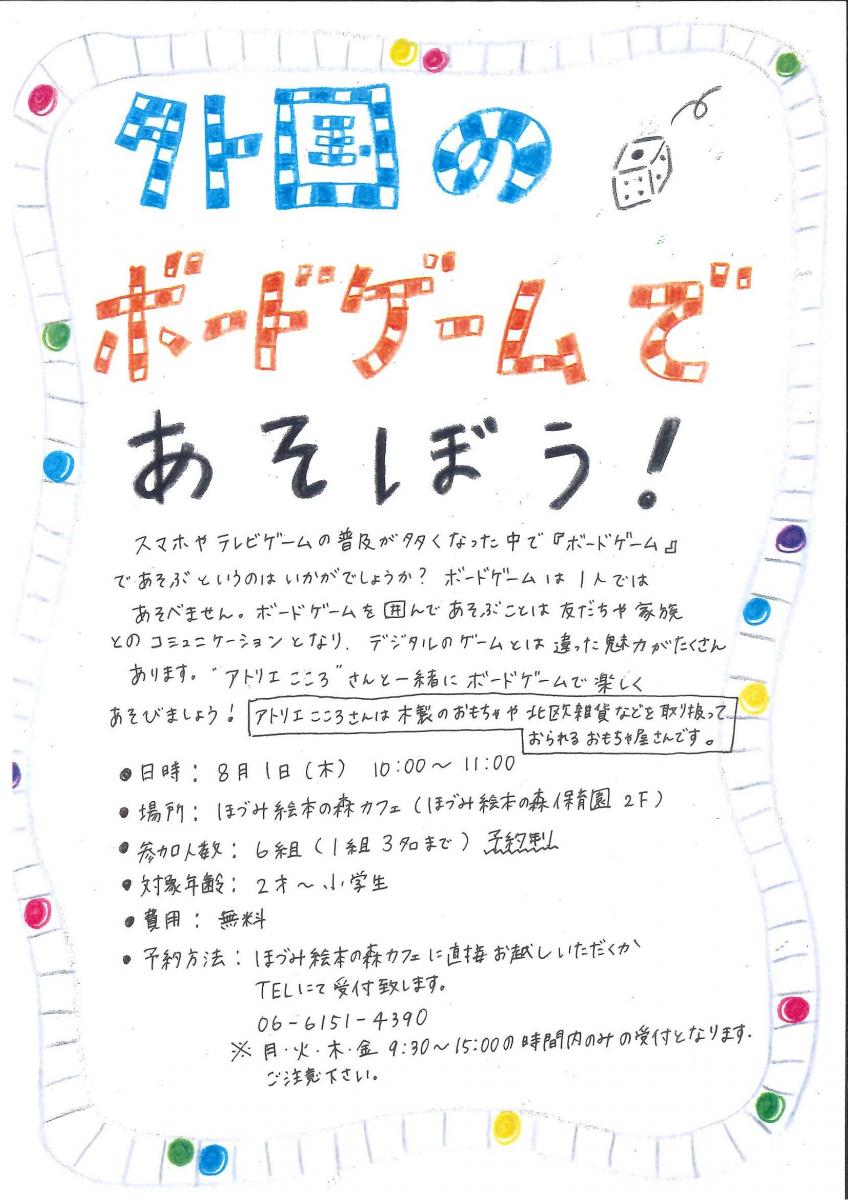 外国の
ボードゲームで
あそぼう!
スマホやテレビゲームの普及が多くなった中で『ボードゲーム』
であそぶというのはいかがでしょうか? ボードゲームは1人では
あそべません。ボードゲームを囲んであそぶことは友だちや家族
とのコミュニケーションとなり、デジタルのゲームとは違った魅力がたくさん
あります。"アトリエこころ"さんと一緒にボードゲームで楽しく
あそびましょう! アトリエこころさんは木製のおもちゃや北欧雑貨などを取り扱って
おられるおもちゃ屋さんです。
●日時: 8月1日(木) 10:00~11:00
●場所: ほづみ絵本の森カフェ(ほづみ絵本の森保育園 2F)
●参加人数: 6組(1組3名まで) 予約制
●対象年齢: 2才~小学生
●費用: 無料
●予約方法: ほづみ絵本の森カフェに直接お越しいただくか
TELにて受付致します。
06-6151-4390
※月・火・木・金 9:30~15:00の時間内のみの受付となります.
ご注意下さい。